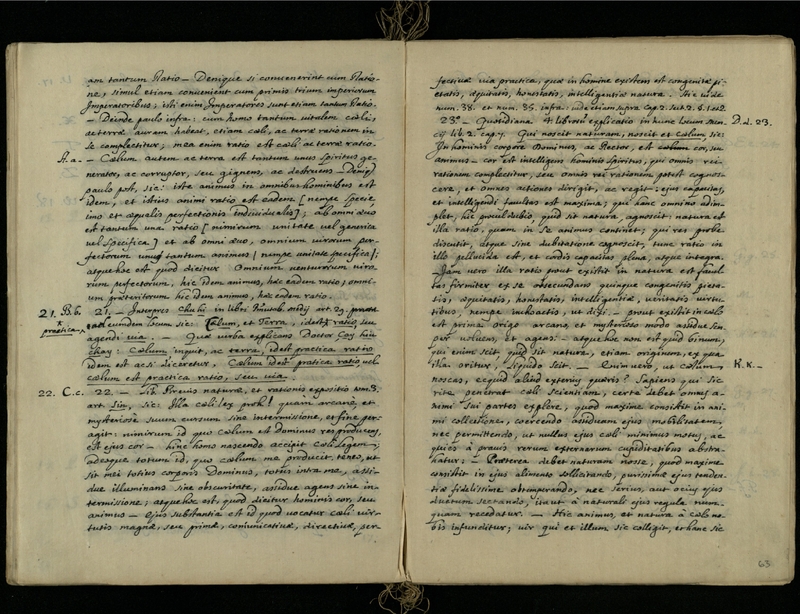 am tantum Ratio – Denique si convenerint cum Ratio-
ne, simul etiam conveniunt cum primis trium imperiorum
Imperatoribus; isti enim Imperatores sunt etiam tantum Ratio.
– Deinde paulo infra: cum homo tantum vitalem cœli,
ac terræ auram habeat, etiam cœli, ac terræ rationem in
se complectitur; mea enim ratio est cœli ac terræ ratio.
A.a. – Cœlum autem ac terra est tantum unus spiritus ge-
nerator, ac corruptor, seu gignens, ac destruens – Deniq
paulo post, sic: iste animus in omnibus hominibus est
idem, et istius animi ratio est eadem [nempe specie
imo et æqualis perfectionis individualis]; ab omni ævo
est tantum una ratio [nimirum unitate vel generica
vel specifica] et ab omni ævo, omnium virorum per-
fectorum unus tantum animus [nempe unitate specifica];
atque hoc est quod dicitur Omnium venturorum viro-
rum perfectorum, hic idem animus, hæc eadem ratio; omni-
um præteritorum hic idem animus, hæc eadem ratio.
21. B.b. 21. – Interpres Chu hi in libri
eundem locum sic: Cœlum, et Terra, idest ratio, seu
practica
agendi via. – Quæ verba explicans Doctor
Cœlum inquit, ac terra, idest practica ratio
idem est ac si diceretur, Cœlum idest practica ratio, vel
cœlum est practica ratio, seu via.
22. C.c. 22. – Lib. Brevis naturæ, et rationis expositio
art. Sin, sic: Illa cœli lex proh! quam arcano, et
mysterioso suum cursum sine intermissione, et fine per-
agit: nimirum id quo cœlum est Dominus res producens,
est ejus cor – hinc homo nascendo accipit cœli legem,
adeoque totum id, quo cœlum me producit, tenet, ut
sit mei totius corporis Dominus, totus intra me, assi-
due illuminans sine obscuritate, assidue agens sine in-
termissione; atque hoc est, quod dicitur hominis cor, seu
animus – Ejus substantia est id quod vocatur cœli vir-
tutis magnæ, seu primæ, comunicativæ, directivæ, per-
fectivæ via practica, quæ in homine existens est congenitæ pi-
etatis, æquitatis, honestatis, intelligentiæ natura. Hic vide
num. 38. et num. 35. infra: vide etiam supra cap. 2.
23.º – Quotidiana 4 librorum explicatio in hunc locum Men
D.d. 23.
cij lib. 2. cap. 7. Qui noscit naturam, noscit et cœlum sic:
In hominis corpore Dominus, ac Rector, est cor, seu
animus – cor est intelligens hominis spiritus, qui omnis rei
rationem complectitur, seu omnis rei rationem potest cognos-
cere, et omnes actiones dirigit, ac regit: ejus capacitas,
et intelligendi facultas est maxima; qui hanc omnino adim-
plet, hic procul dubio, quid sit natura, agnoscit: natura est
illa ratio, quam in se animus continet; qui res probe
discutit, atque sine dubitatione cognoscit, tunc ratio in
illo pellucida est, et cordis capacitas plena, atque integra.
– Jam vero illa ratio prout existit in natura est facul-
tas firmiter ex se obsecundans quinque congenitis pieta-
tis, æquitatis, honestatis, intelligentiæ, veritatis virtu-
tibus, nempe inchoactis, ut dixi. – prout existit in cœlo
est prima origo arcano, et mysterioso modo assidue sem-
per volvens, et agens: – atque hæc non est quid binum,
qui enim scit, quid sit natura, etiam originem, ex qua
illa oritur, liquido scit. – Enimvero, ut cœlum K.K. –
noscas, ecquid aliud exterius quæris? Sapiens qui sic
rite penetrat cœli scientiam, certe debet omnes a-
nimi sui partes explere, quod maxime consistit in ani-
mi collectione, coercendo assiduam ejus mobilitatem,
nec permittendo, ut nullus ejus vel minimus motus, ac
quies à pravis rerum externarum cupiditatibus abstra-
hatur. – Præterea debet naturam nosse, quod maxime
consistit in ejus alimento sollicitando, purissimæ ejus tenden-
tiæ fidelissime obtemperando, nec serius, aut ocius ejus
ductum sectando, ita ut à naturali ejus regula num-
quam recedatur. – Hic animus, et natura à cœlo no-
bis infunditur; vir qui et illum sic colligit, et hanc sic
63